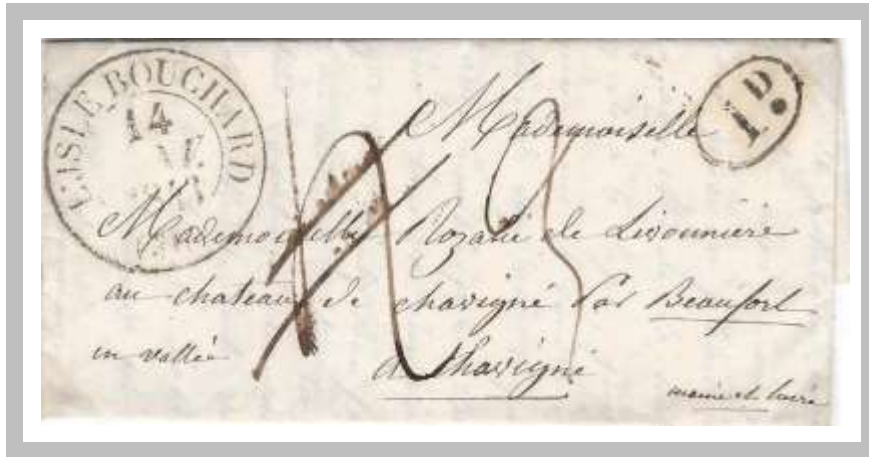 L'ISLE BOUCHARD
14
1D.
Mademoiselle
Mademoiselle Rozalie de Livonniere
au chateau de chavigné par Beaufort
en vallée
a Chavigné
maine et loire